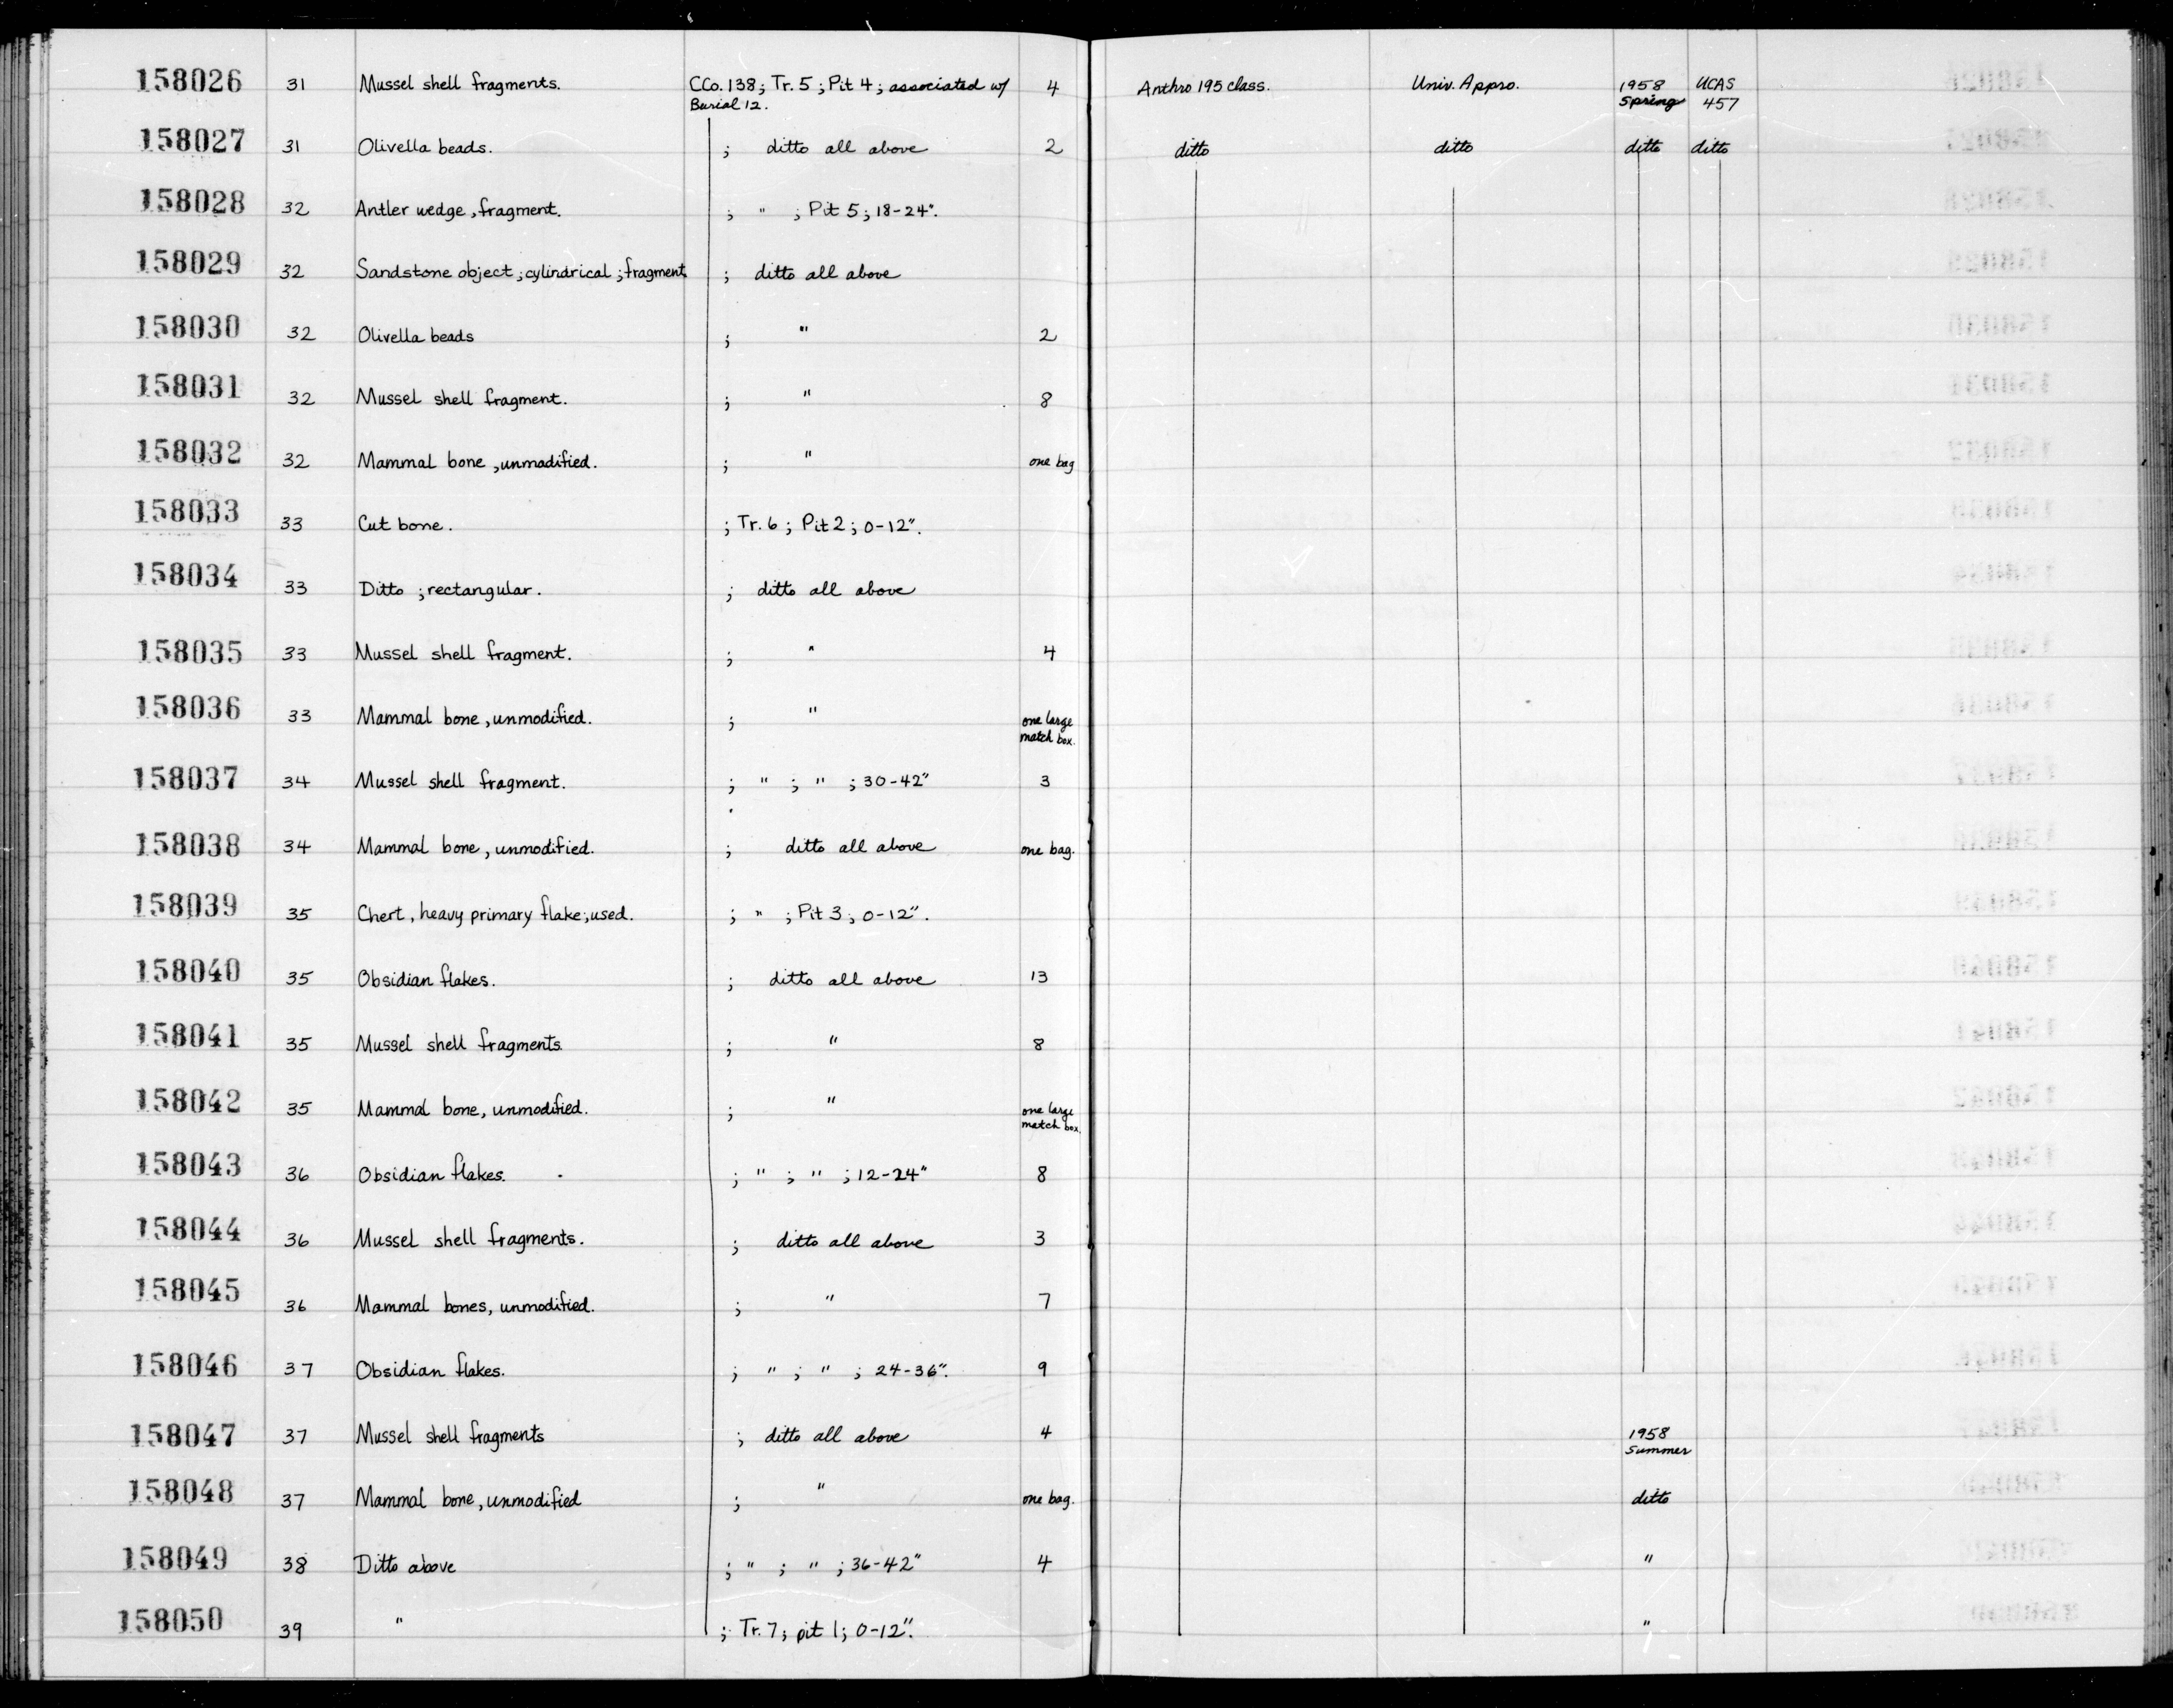 158026 31 Mussel shell fragments. CCo. 138; Tr. 5; Pit 4; associated w/ 4 Anthro 195 class. Univ. Appro. 1958 UCAS
Burial 12. Spring 457
158027 31 Olivella beads. ; ditto all above 2 ditto ditto ditto ditto
158028 32 Antler wedge, fragment. ; " ; Pit 5; 18-24".
158029 32 Sandstone object; cylindrical; fragment ; ditto all above
158030 32 Olivella beads ; " 2
158031 32 Mussel shell fragment. ; " 8
158032 32 Mammal bone, unmodified. ; " one bag
158033 33 Cut bone. ; Tr. 6; Pit 2; 0-12".
158034 33 Ditto; rectangular. ; ditto all above
158035 33 Mussel shell fragment. ; " 4
158036 33 Mammal bone, unmodified. ; " one large
match box.
158037 34 Mussel shell fragment. ; " ; " ; 30-42" 3
158038 34 Mammal bone, unmodified. ; ditto all above one bag.
158039 35 Chert, heavy primary flake; used. ; " ; Pit 3; 0-12".
158040 35 Obsidian flakes. ; ditto all above 13
158041 35 Mussel shell fragments. ; " 8
158042 35 Mammal bone, unmodified. ; " one large
match box.
158043 36 Obsidian flakes. ; " ; " ; 12-24" 8
158044 36 Mussel shell fragments. ; ditto all above 3
158045 36 Mammal bones, unmodified. ; " 7
158046 37 Obsidian flakes. ; " ; " ; 24-36". 9
158047 37 Mussel shell fragments ; ditto all above 4 1958
Summer
158048 37 Mammal bone, unmodified ; " one bag. ditto
158049 38 Ditto above ; " ; " ; 36-42" 4 "
158050 39 " ; Tr. 7; pit 1; 0-12". "